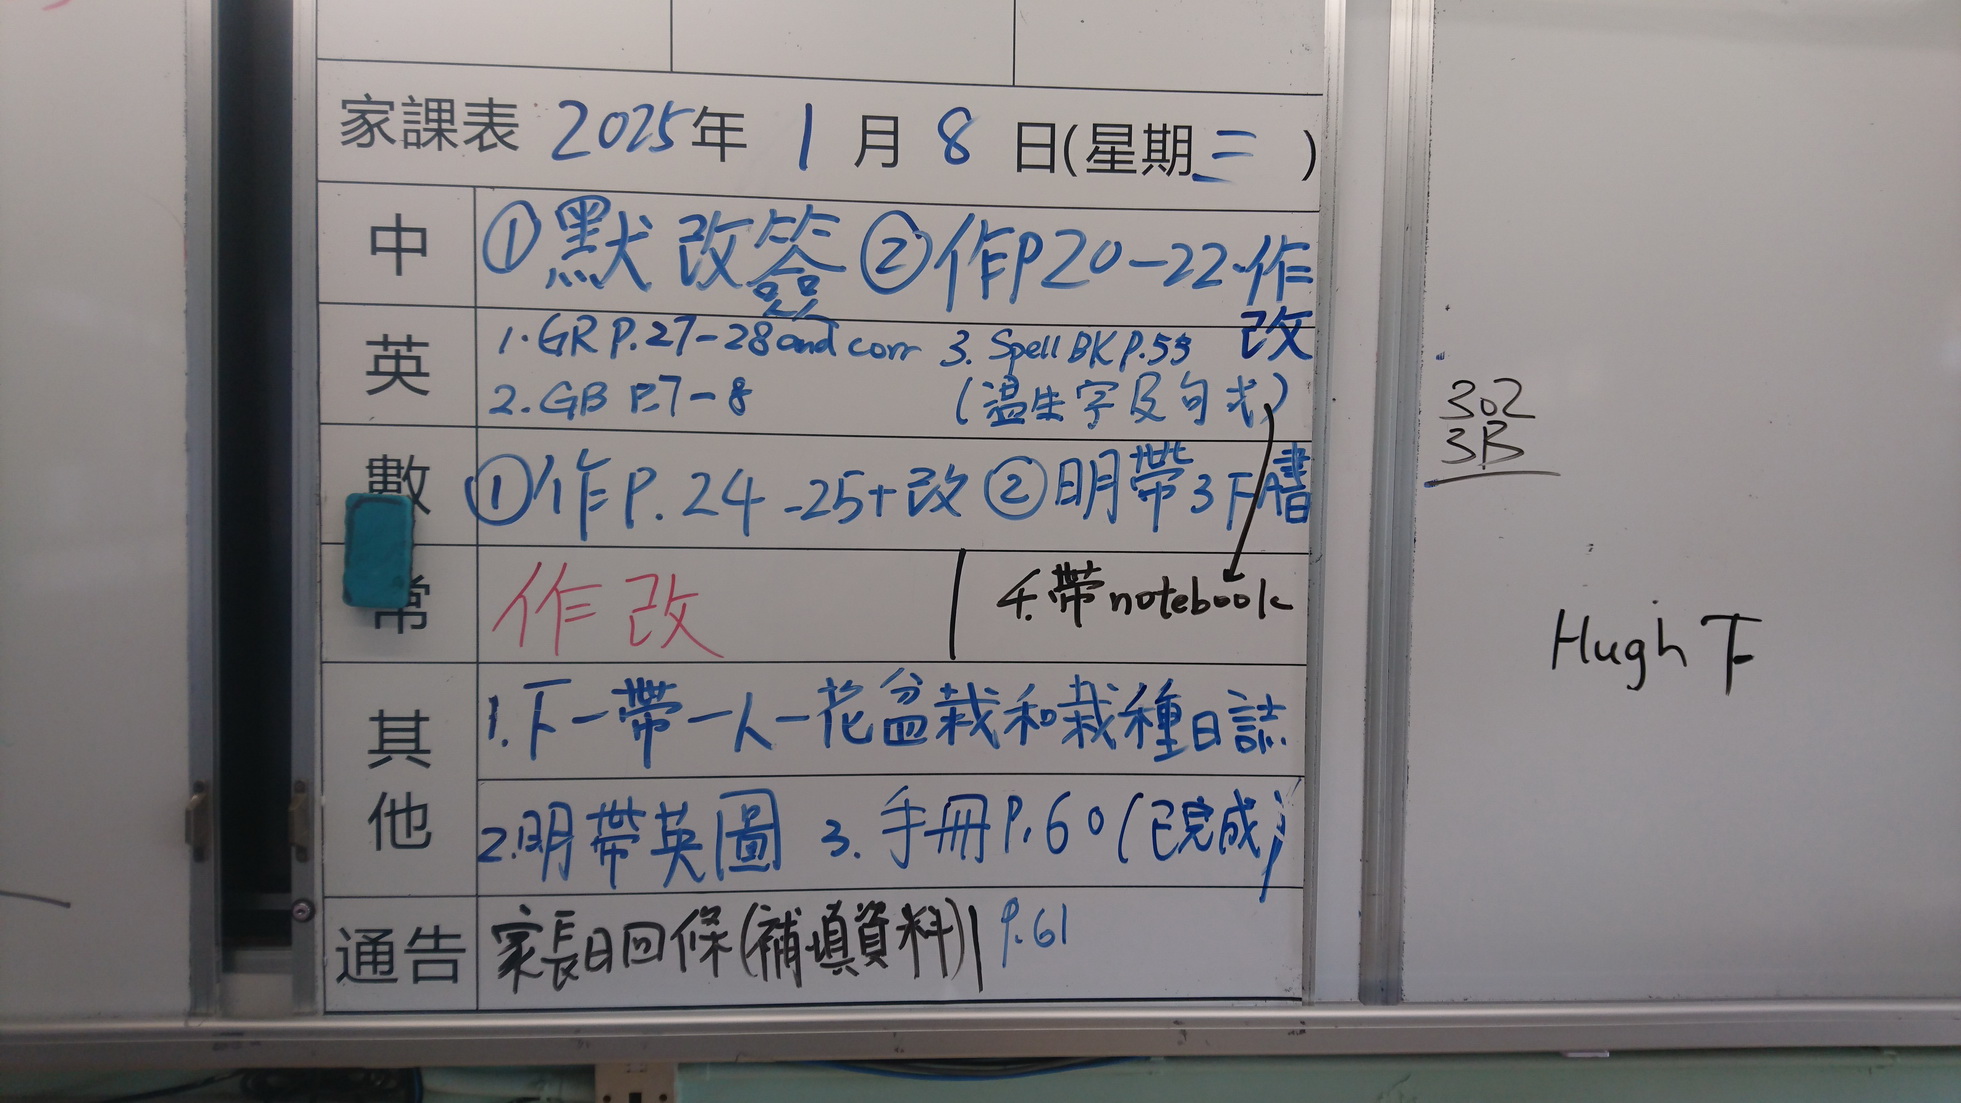 家課表 2025年 1月 8日(星期三)
中 ①默改簽 ②作P20-22.作改
英 1. GR P.27-28 and corr 3. Spell BK P.55
2. GB P.7-8 (溫生字及句式)
數 ①作P.24-25+改 ②明帶3下A書
常 作改 4.帶notebook
其他 1.下一帶一人一花盆栽和栽種日誌
2.明帶英圖 3.手冊P.60(已完成)
通告 家長日回條(補填資料) P.61
302
3B
Hugh 下